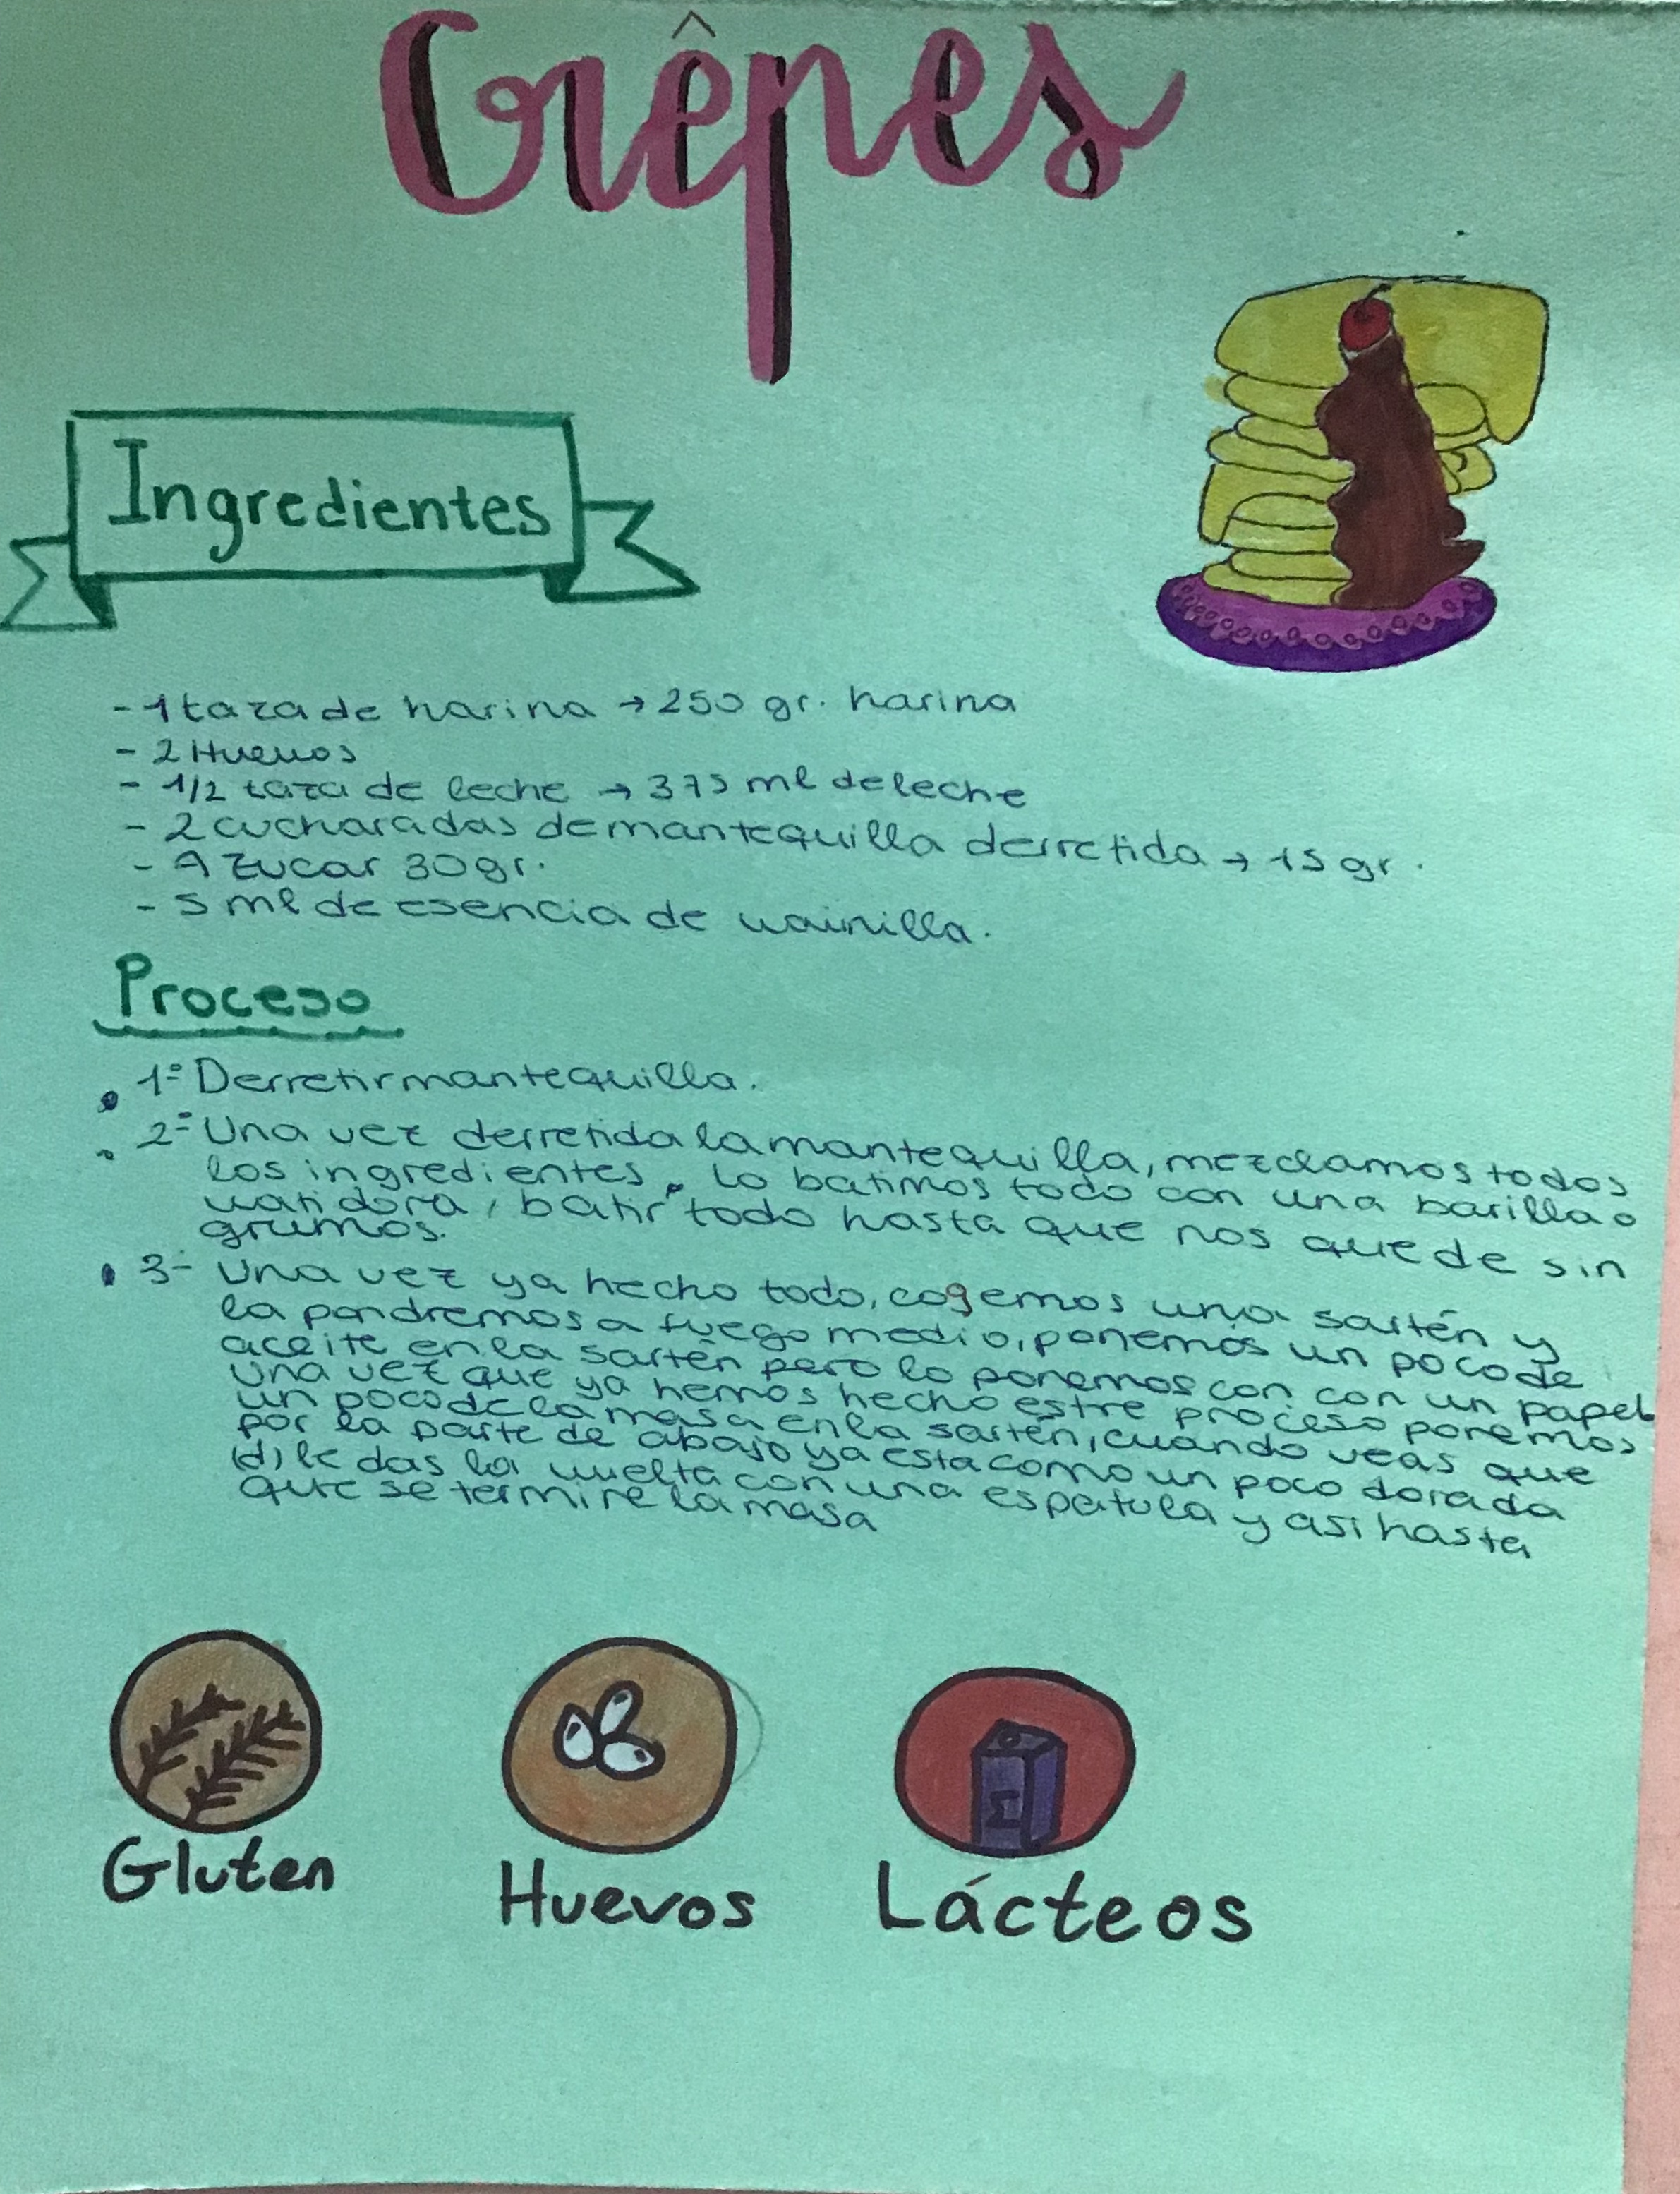 Crêpes
Ingredientes
- 1 taza de harina → 250 gr. harina
- 2 Huevos
- 1/2 taza de leche → 375 ml de leche
- 2 cucharadas de mantequilla derretida → 15 gr.
- Azucar 30 gr.
- 5 ml de esencia de vainilla.
Proceso
1º Derretir mantequilla.
2º Una vez derretida la mantequilla, mezclamos todos
los ingredientes. Lo batimos todo con una barilla o
vatidora, batir todo hasta que nos quede sin
grumos.
3- Una vez ya hecho todo, cogemos una sartén y
la pondremos a fuego medio, ponemos un poco de
aceite en la sartén pero lo ponemos con con un papel
una vez que ya hemos hecho estre proceso ponemos
un poco de la masa en la sartén, cuando veas que
por la parte de abajo ya esta como un poco dorada
(d) le das la vuelta con una espatula y asi hasta
que se termine la masa
Gluten
Huevos
Lácteos